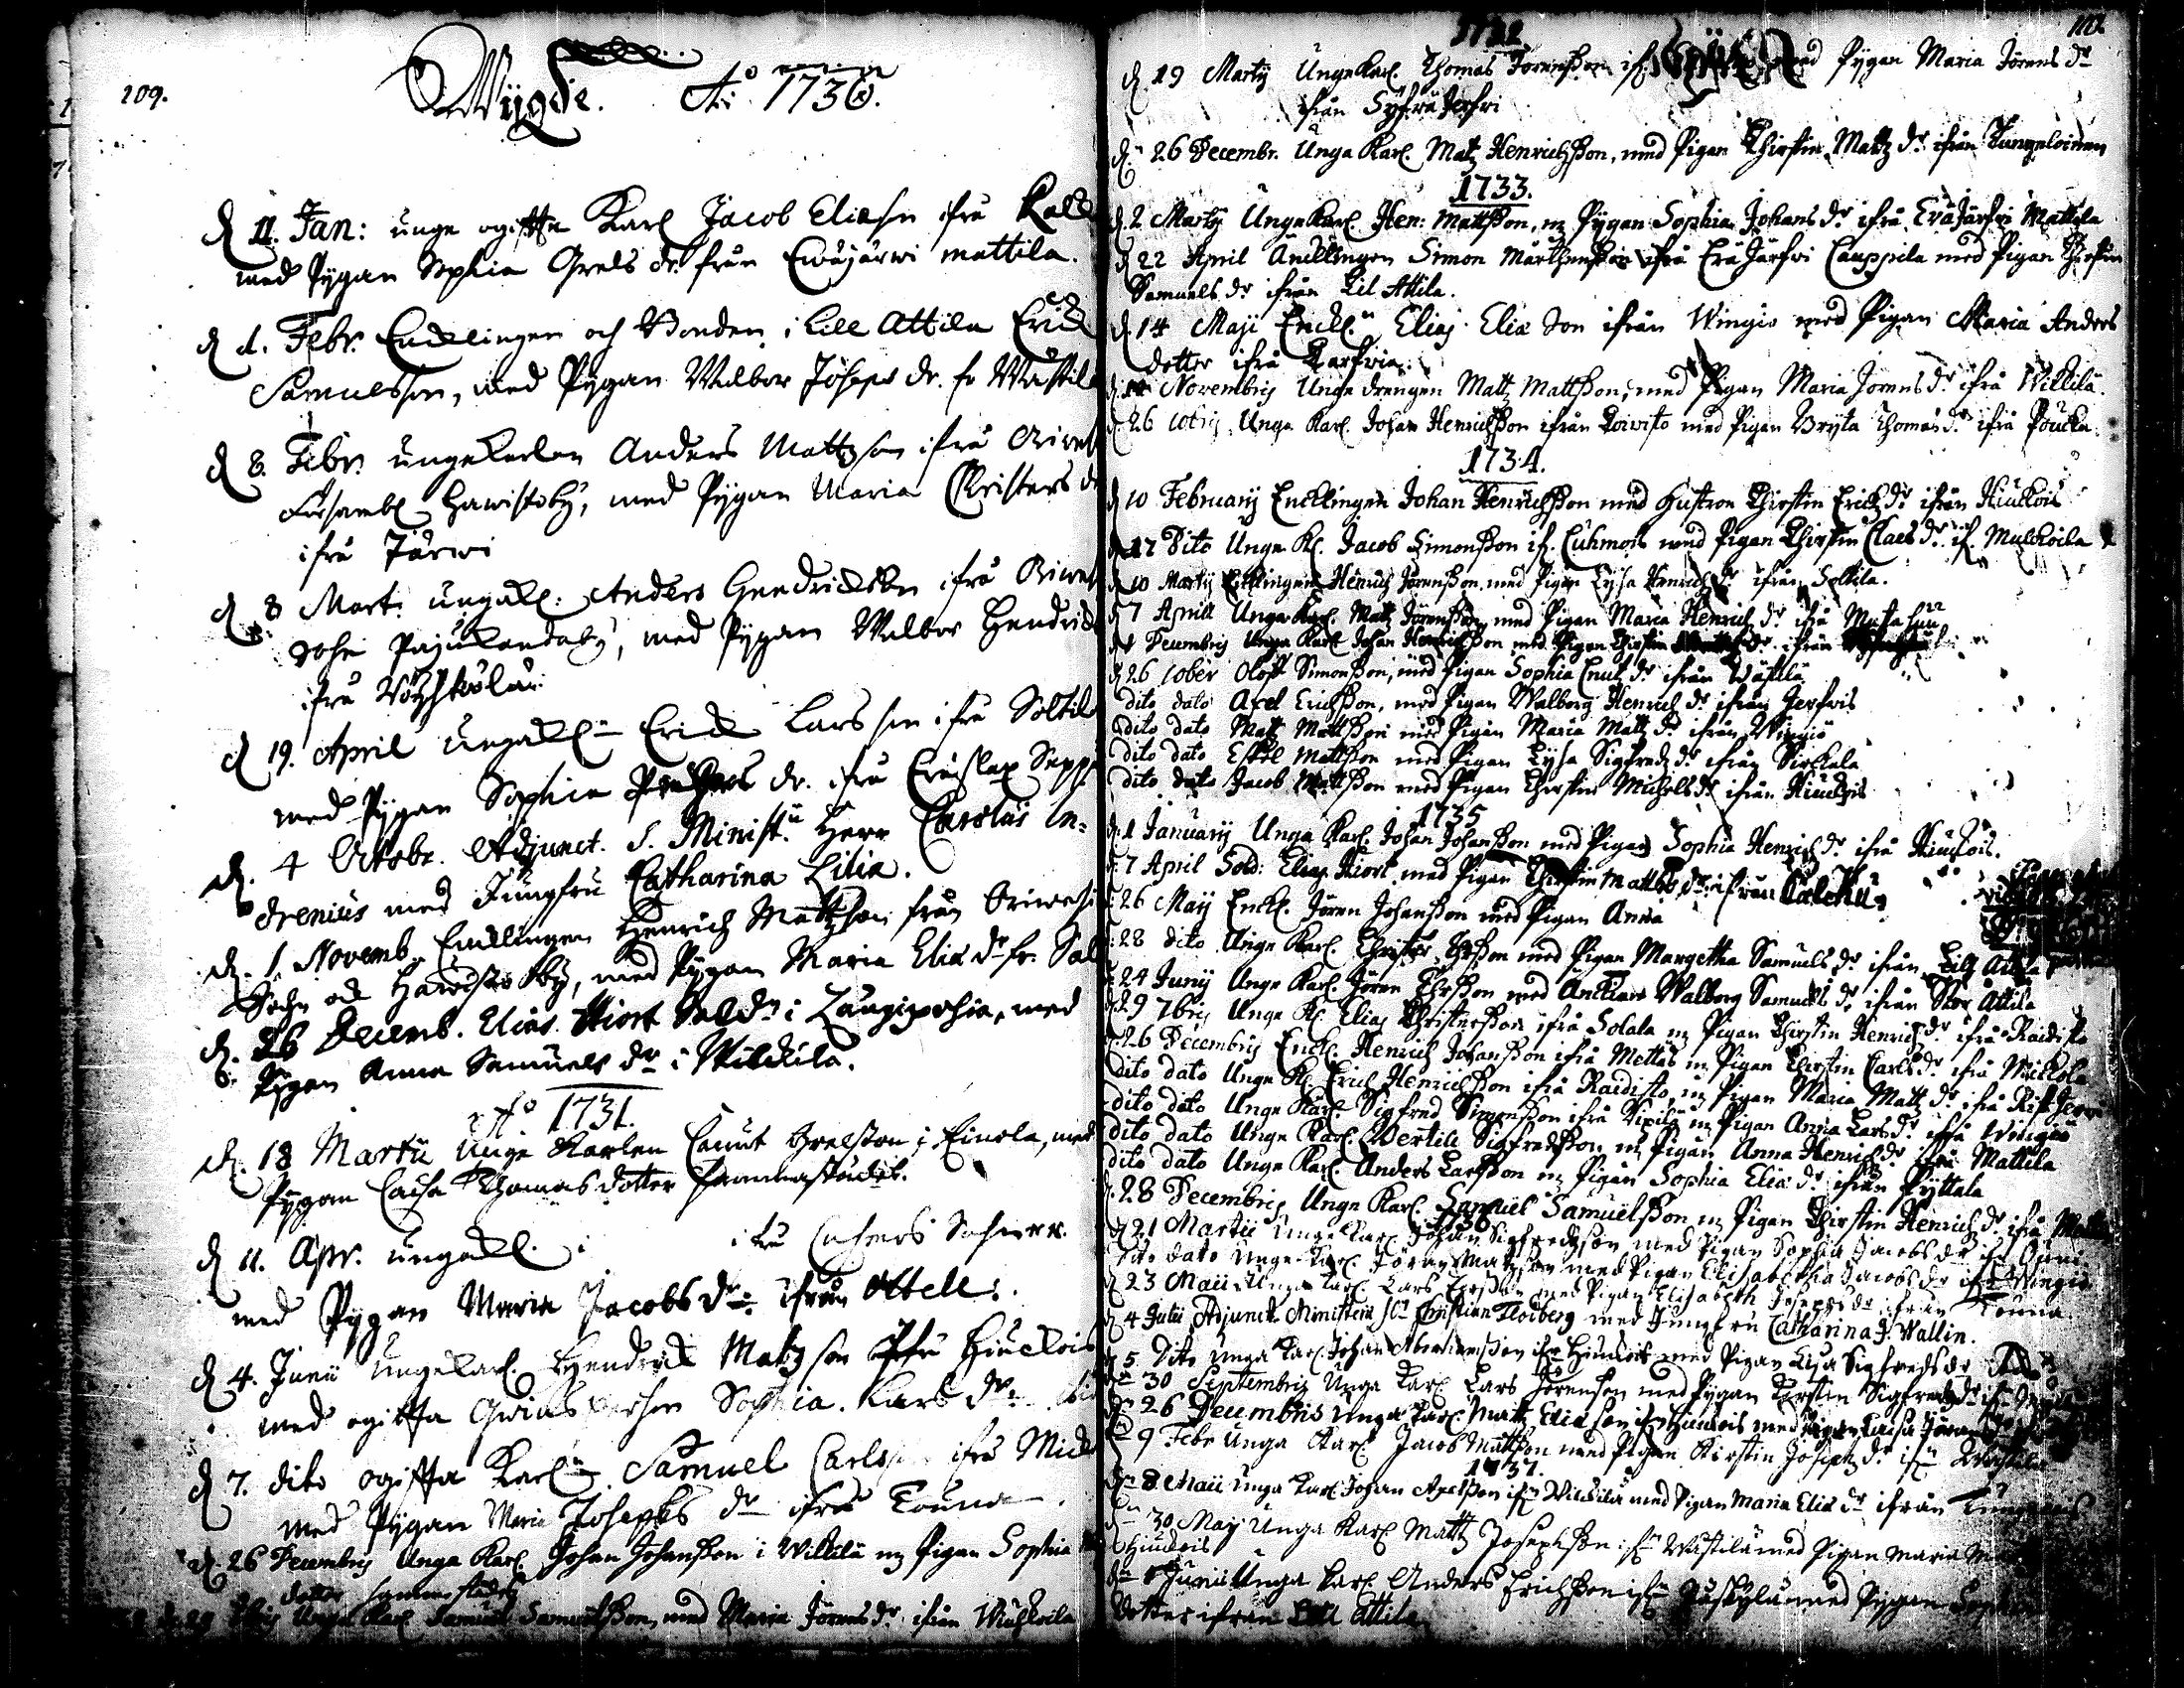 109.
Wijgde. Ao 1730.
d 11. Jan: unge ogifta Karl Jacob Eliæson ifrå
med Pygan Sophia Grels dr. från Eräjärwi mattila.
d 1. Febr. Encklingen och Bonden i Lill Attila Erick
Samuelsson, med Pygan Walbor Joseps dr. fr Wästilä
d 8. Febr. ungekarlen Anders Mattzson ifrå Oriwesi
Försambl Hawistoby, med Pygan Maria Christers dr
ifrå Järwi
d 8 Mart. ungekl. Anders Hendrickson ifrå Oriwesi
Sohn Pajukandaby, med Pygan Walbor Hendricks
ifrå
d 19. April ungekl Erick Larsson ifrå Soltila
med Pygan Sophia dr. ifrå Eräslax Seppä
d. 4 Octobr. Adjunct. S. Minist. Herr Carolus In=
drenius med Jungfru Catharina Lilia.
d. 1 Novemb. Encklingen Henrich Mattzson från Oriwesi
Sohn och Hawisto by, med Pygan Maria Eliæ dr fr. Sal
d. 26 Decemb. Elias Hiort Sold: i Laugipohia, med
Pygan Anna Samuels dr i Wilckila.
Ao 1731.
d. 18 Martii Unge Karlen Canut Grelsson i Einola, med
Pygan Caisa Thomas dotter sammastädes.
d 11. Apr. ungekl. i ifrå Cuhmois Sohn
med Pygan Maria Jacobs dr: ifrån Attell:
d 4. Junii ungekarl. Hendrich Matzson ifrå Hiuckois
med ogifta Sophia Lars dr
d 7. dito ogifta Karl Samuel Carlsson ifrå Mick
med Pygan Maria Josephs dr ifrå Touna
d. 26 Decembris Unga Karl Johan Johansson i Wilkilä m Pigan Sophia
dotter sammastädes
d. 29 Xbris Unga Karl Samuel Samuelsson, med Maria Jörensdr. ifrån Mulkoila
1732
d. 19 Martij UngeKarl. Thomas Jörensson if. med Pygan Maria Jörens dr
ifrån Syfrä Jerfwi
d. 26 Decembr. Unga Karl. Matz Henrichsson, med Pigan Chirstin Mattz dr. ifrån
1733.
d. 2 Martij UngeKarl. Hen: Mattsson, m Pygan Sophia Johans dr ifrå Eräjärfwi Mattila
d 22 April Äncklingen Simon Mårthensson ifrå Eräjärfwi Cauppila med Pigan Chirstin
Samuels dr ifrån Lil Attila.
d. 14 Maji Enckl. Elias Eliæ Son ifrån Wingio med Pigan Maria Anders
dotter ifrå
d. Novembris Unge drengen Matz Mattsson, med Pigan Maria Jörens dr ifrå Wilkilä.
d 26 10bris Unga Karl. Johan Henrichsson ifrån Koiwisto med Pigan Brijta Thomæ dr. ifrå Poucka
1734.
d 10 Februarij Encklingen Johan Henrichsson med Hustron Chirstin Erichs dr ifrån Hiuckois
d 17 Dito Unge Kl. Jacob Simonsson if. Cuhmois med Pigan Chirstin Claes dr. if. Mulckoila
d 10 Martij Encklingen Henrich Jörensson, med Pigan Lysa Henrichs dr ifrån Soltila.
d 7 Aprill Unge Karl. Matz Jörensson, med Pigan Maria Henrichs dr ifrå
d 1 Decembris Unga Karl Johan Henrichsson med Pigan Chirstin dr ifrån
d 26 10ber Oloff Simonsson, med Pigan Sophia Cnuts dr ifrån Wästilä
dito dato Axel Erichsson, med Pigan Walborg Henrichs dr ifrån Jerfwis
dito dato Matz Mattsson med Pigan Maria Matz dr ifrån Wingiö
dito dato Eskel Mattsson med Pigan Lysa Sigfreds dr ifrån Sirckala
dito dato Jacob Mattsson med Pigan Chirstin Michelsdr ifrån Hiuckois
1735
d. 1 Januarij Unga Karl. Johan Johansson med Pigan Sophia Henrichs dr ifrå Hiuckois.
d. 7 April Sold: Elias Hiort med Pigan Chirstin Mattzdr ifrån
d. 26 Maij Enckl. Jören Johansson med Pigan Anna
d. 28 dito Unga Karl. Christer med Pigan Margetha Samuels dr ifrån Lill Attila
d. 24 Junij Unge Karl. Jören med Änckian Walborg Samuels dr ifrån Stor Attila
d. 29 7bris Unga Kl. Elias Christersson ifrå Solala m Pigan Chirstin Henrichs dr ifrå Raidisto
d. 26 Decembris Enckl. Henrich Johansson ifrå Mettäs m Pigan Chirstin Carls dr ifrå Mickola
dito dato Unge Kl. Erich Henrichsson ifrå Raidisto, m Pigan Maria Matz dr ifrå
dito dato Unge Karl. Sigfred Simonsson ifrå m Pigan Anna Lars dr ifrå Wingiö
dito dato Unge Karl. Bertill Sigfredsson m Pigan Anna Henrichs dr ifrå Mattila
dito dato Unge Karl. Anders Larsson m Pigan Sophia Eliæ dr ifrån Pyttala
d. 28 Decembris Unge Karl. Samuel Samuelsson m Pigan Chirstin Henrichs dr ifrå
1736
d 21 Martii Unge Karl Johan Sigfredsson med Pigan Sophia Jacobs dr ifr
Dito dato Unge Karl. Jöran Matzson med Pigan Elisabetha Jacobs dr ifr Wingiö
d 23 Maii Unga Karl. Lars med Pigan Elisabeth Josephs dr ifrån Touna.
d 4 Julii Adjunct. Ministerii Christian Floiberg med Jungfru Catharina J. Wallin.
d 5 Dito Unga Karl. Johan Abrahamsson ifr Hiuckois med Pigan Lisa Sigfreds dr
d 30 Septembris Unga Karl Lars Jörensson med Pygan Kirstin Sigfreds dr ifr
d 26 Decembris Unga Karl. Matz Eliæson ifr Hiuckois med Pigan Caisa Jöran
d 9 Febr Unga Karl Jacob Mattsson med Pigan Kirstin Josephs dr ifr Wästilä
1737.
d 8 Maii Unga Karl Johan Axelsson ifr Wilkilä med Pigan Maria Eliæ dr ifrån
d 30 Maij Unga Karl Mattz Josephson ifr Wästilä med Pigan Maria
Hiuckois
d Junii Unga Karl Anders Erichsson ifr med Pygan Sophia
dotter ifrån Lill Attila